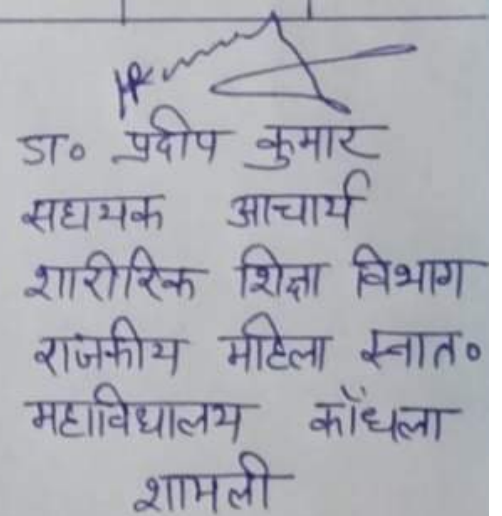 डा० प्रदीप कुमार
सहायक आचार्य
शारीरिक शिक्षा विभाग
राजकीय महिला स्नात०
महाविद्यालय काँधला
शामली